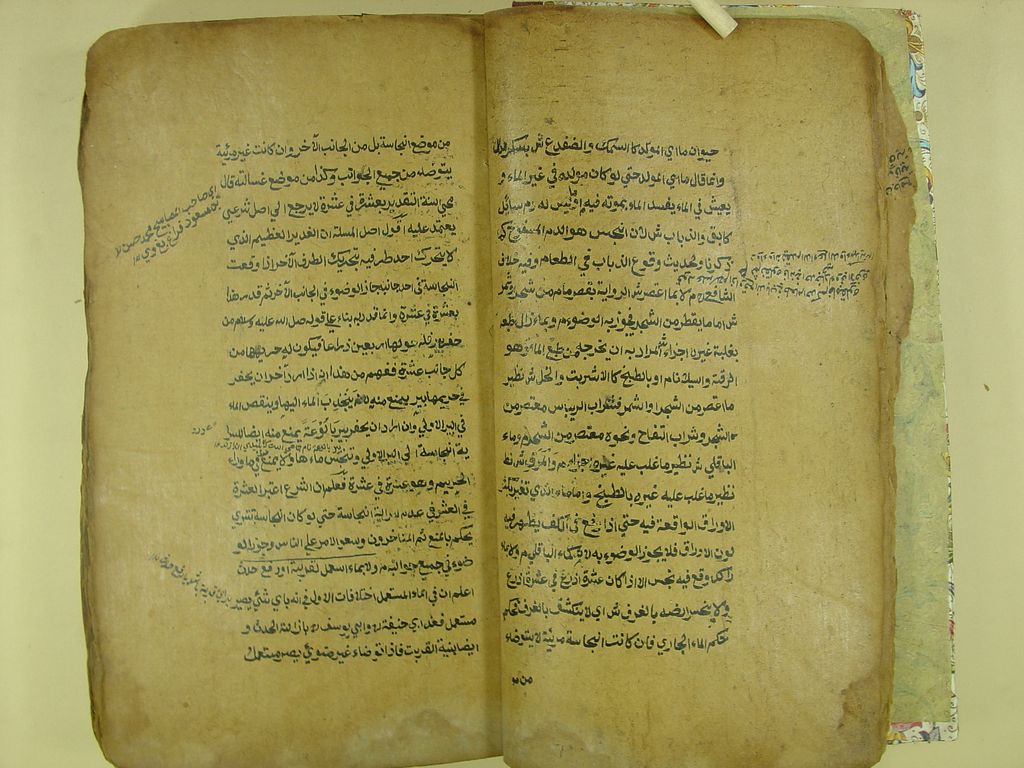 حيوان مائي المولد كالسمك والضفدع ش بكسر الدال
وانما قال مائي المولد حتى لو كان مولده في غير الماء و
يعيش في الماء يفسد الماء بموته فيه م او ليس له دم سائل
كالبق والذباب ش لان النجس هو الدم المسفوح كما
ذكرنا ولحديث وقوع الذباب في الطعام وفيه خلاف
الشافعي م لا بما اعتصر ش الرواية بقصر ما م من شجر او ثمر
ش اما ما يقطر من الشجر فيجوز به الوضوء م وبماء زال طبعه
بغلبة غيره اجزاء ش المراد به ان تخرجه من طبع الماء وهو
الرقة والسيلان م او بالطبخ كالاشربة والخل ش نظير
ما اعتصر من الشجر او الثمر فشراب الريباس معتصر من
الشجر وشراب التفاح ونحوه معتصر من الشجر م وماء
الباقلى ش نظير ما غلب عليه غيره اجزاء م والمرق ش نظ
نظير ما غلب عليه غيره بالطبخ واما الماء الذي تغير بكثرة
الاوراق الواقعة فيه حتى اذا رفع في الكف يظهر فيه
لون الاوراق فلا يجوز الوضوء به لانه كماء الباقلى م ولا بماء
راكد وقع فيه نجس الا اذا كان عشرة اذرع في عشرة اذرع
ولا ينحسر ارضه بالغرف ش اي لا ينكشف بالغرف فحكمه
حكم الماء الجاري فان كانت النجاسة مرئية لا يتوضاء
من مو
من موضع النجاسة بل من الجانب الآخر وان كانت غير مرئية
يتوضاء من جميع الجوانب وكذا من موضع غسالته قال
محيي السنة التقدير بعشر في عشر لا يرجع الى اصل شرعي
يعتمد عليه اقول اصل المسئلة ان الغدير العظيم الذي
لا يتحرك احد طرفيه بتحريك الطرف الآخر اذا وقعت
النجاسة في احد جانبيه جاز الوضوء في الجانب الآخر ثم قدر هذا
بعشرة في عشرة وانما قدر به بناء على قوله صلى الله عليه وسلم من
حفر بيرا فله حولها اربعين ذراعا فيكون له حريمها من
كل جانب عشرة ففهم من هذا انه اذا اراد آخر ان يحفر
في حريمها بير يمنع منه لانه ينجذب الماء اليها وينقص الماء
في البير الاولى وان اراد ان يحفر بير بالوعة يمنع منه ايضا لسرا
ية النجاسة الى البير الاولى وتنجس ماءها ولا يمنع في ما وراء
الحريم وهو عشرة في عشرة فعلم ان الشرع اعتبر العشرة
في العشر في عدم سراية النجاسة حتى لو كان النجاسة تسري
يحكم بالمنع ثم المتأخرون وسعوا الامر على الناس وجوزوا الو
ضوء في جميع جوانبه م ولا بماء استعمل لقربة او رفع حدث
اعلم ان في الماء المستعمل اختلافات الاول في انه باي شئ يصير
مستعملا فعند ابي حنيفة و ابي يوسف بازالة الحدث و
ايضا بنية القربة فاذا توضاء غير منوي يصير مستعملا